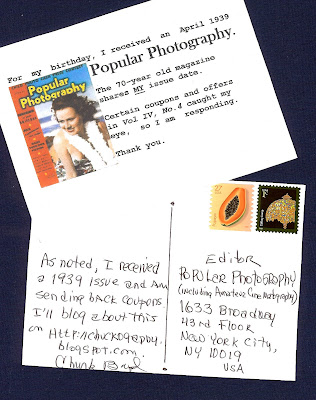 For my birthday, I received an April 1939
Popular Photography.
Popular
Photography
The 70-year old magazine
shares MY issue date.
Certain coupons and offers
in Vol IV, No.4 caught my
eye, so I am responding.
Thank you.
As noted, I received
a 1939 issue and am
sending back coupons
I'll blog about this
on Http://chuckography.
blogspot.com.
Editor
Popular Photography
(including Amateur Cinematography)
1633 Broadway
43rd Floor
New York City,
NY 10019
USA